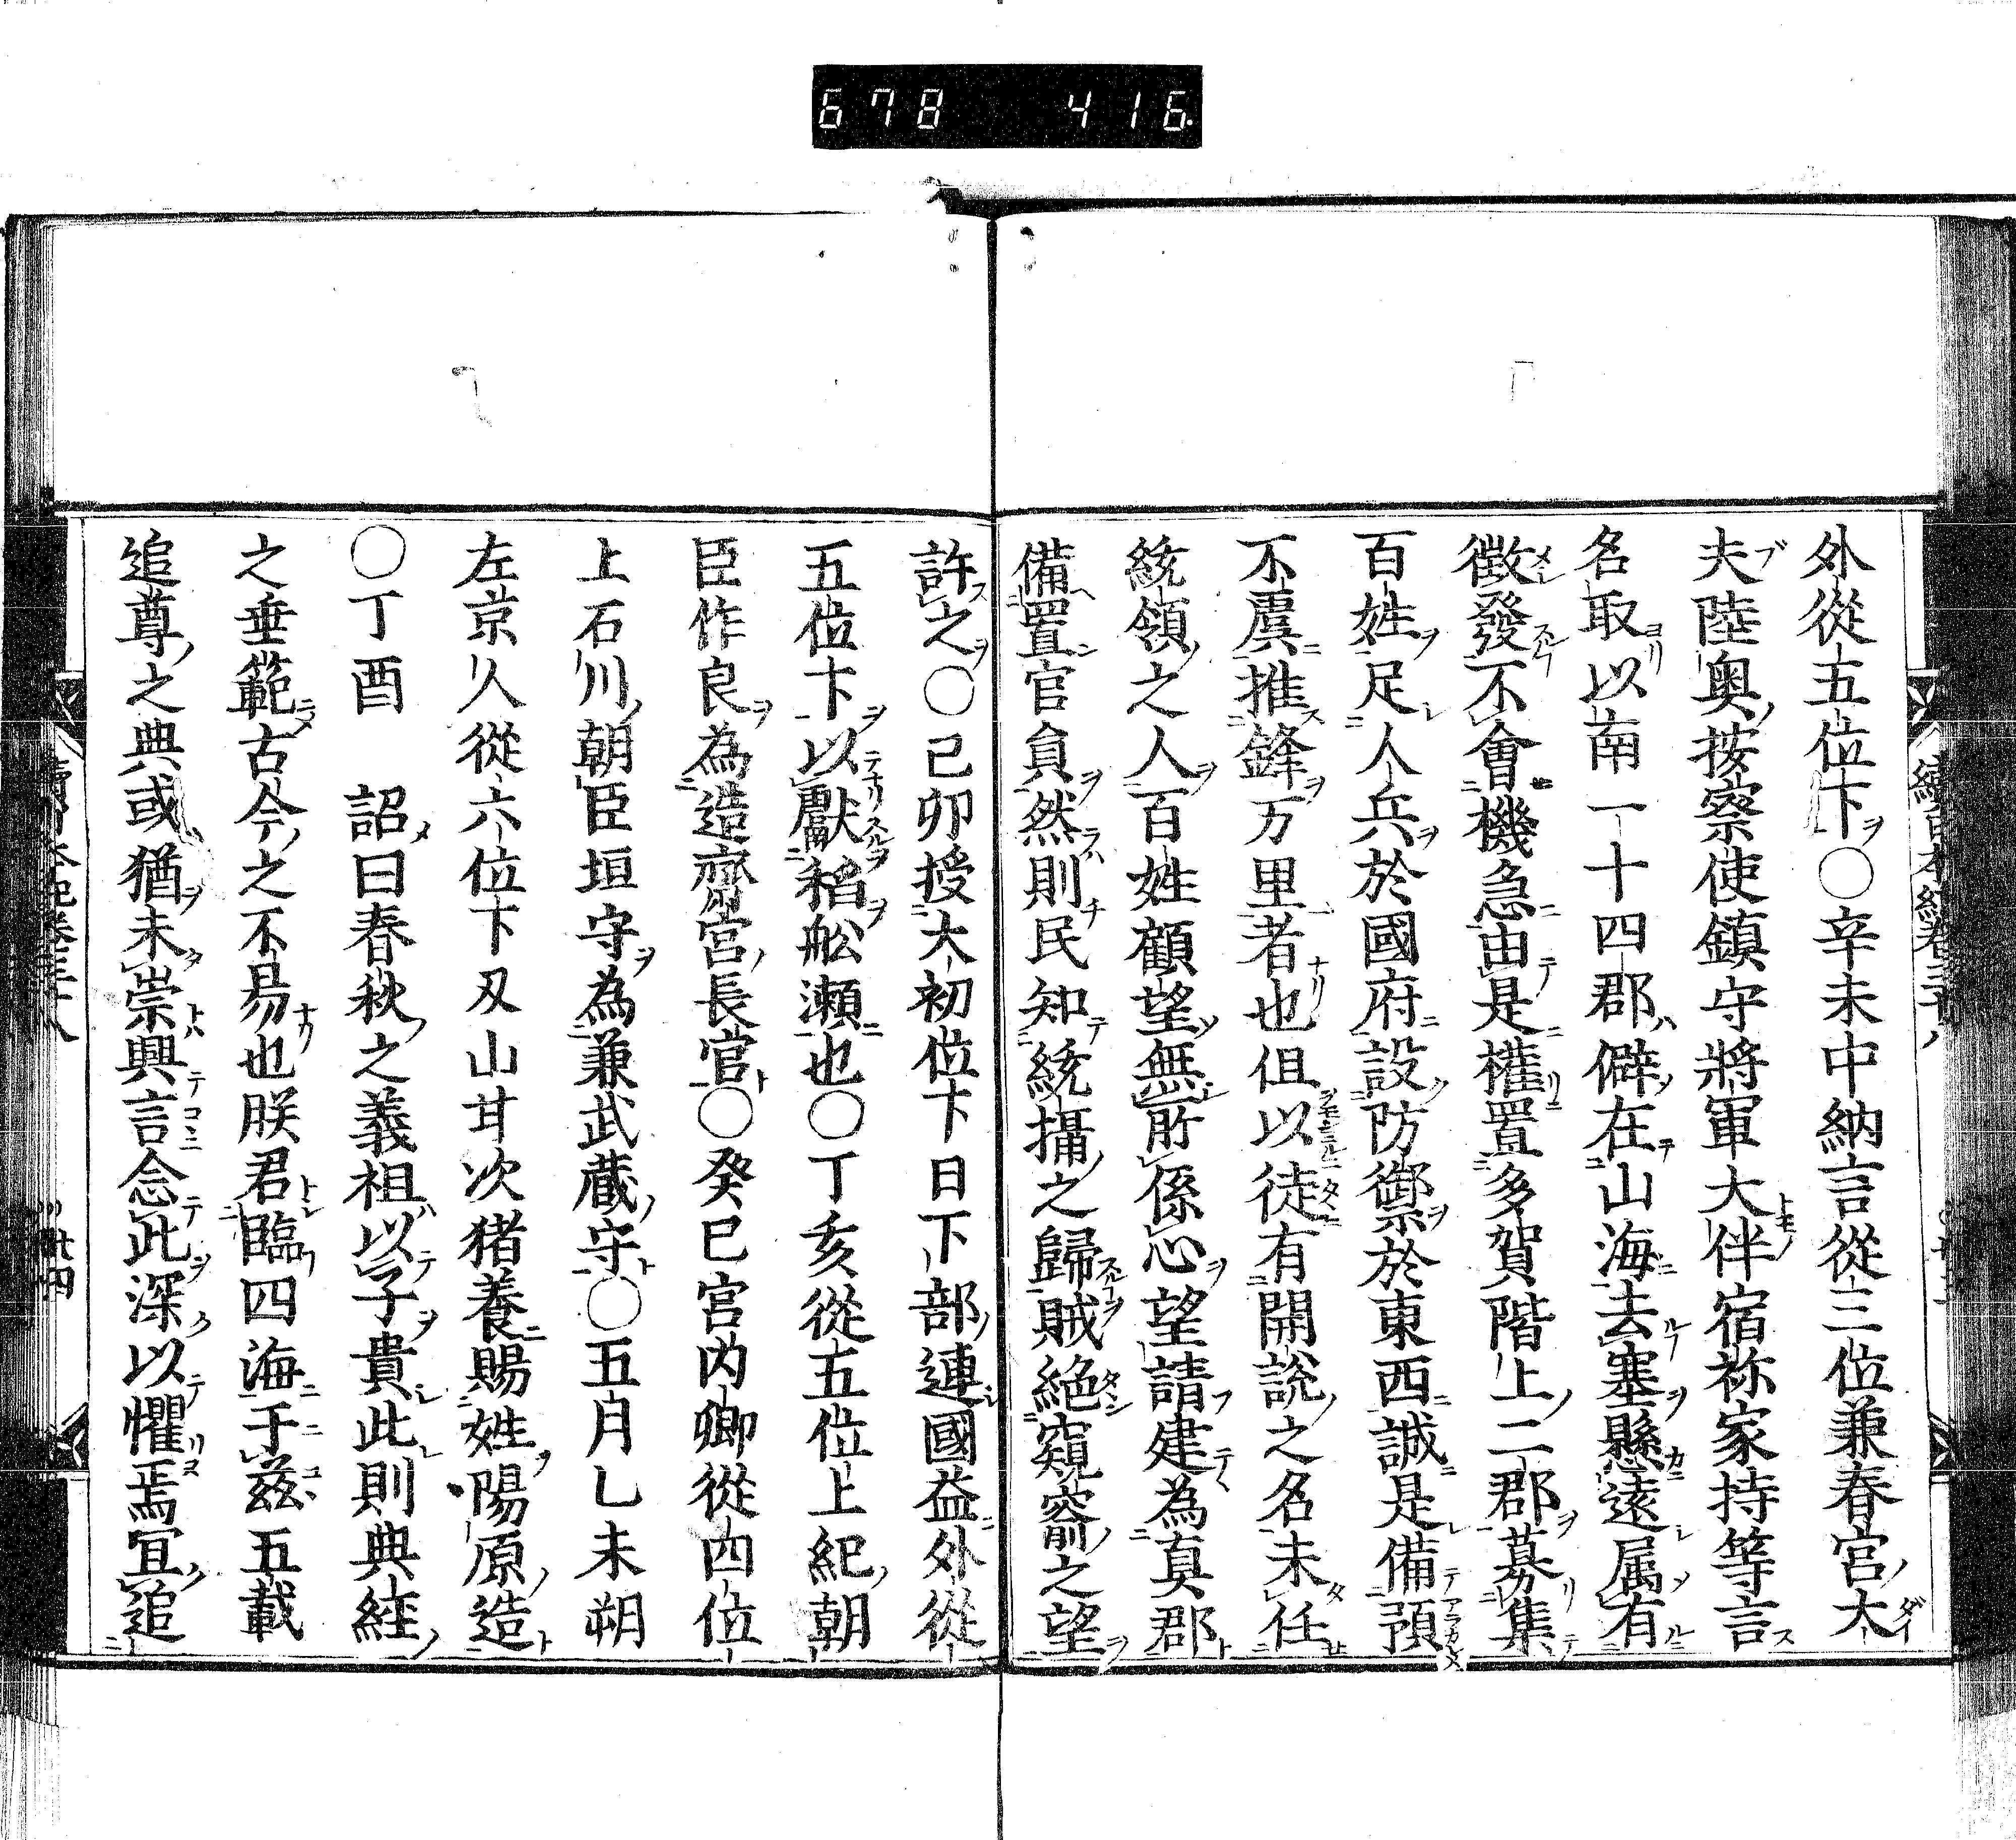 678 416.
外從五位下○辛未中納言從三位兼春宮大
夫陸奥按察使鎮守將軍大伴宿祢家持等言
名取以南一十四郡僻在山海去塞懸遠属有
徴發不會機急由是權置多賀階上二郡募集
百姓足人兵於國府設防禦於東西誠是備預
不虞推鋒万里者也但以徒有開説之名未任
統領之人百姓顧望無所係心望請建為真郡
備置官負然則民知統攝之歸賊絶窺窬之望
許之○己卯授大初位下日下部連國益外從
五位下以獻稻舩瀬也○丁亥從五位上紀朝
臣作良為造齋宮長官○癸巳宮内卿從四位
上石川朝臣垣守為兼武蔵守○五月乙未朔
左京人從六位下丑山甘次猪養賜姓陽原造
○丁酉 詔曰春秋之義祖以子貴此則典經
之垂範古今之不易也朕君臨四海于茲五載
追尊之典或猶未崇興言念此深以懼焉宜追